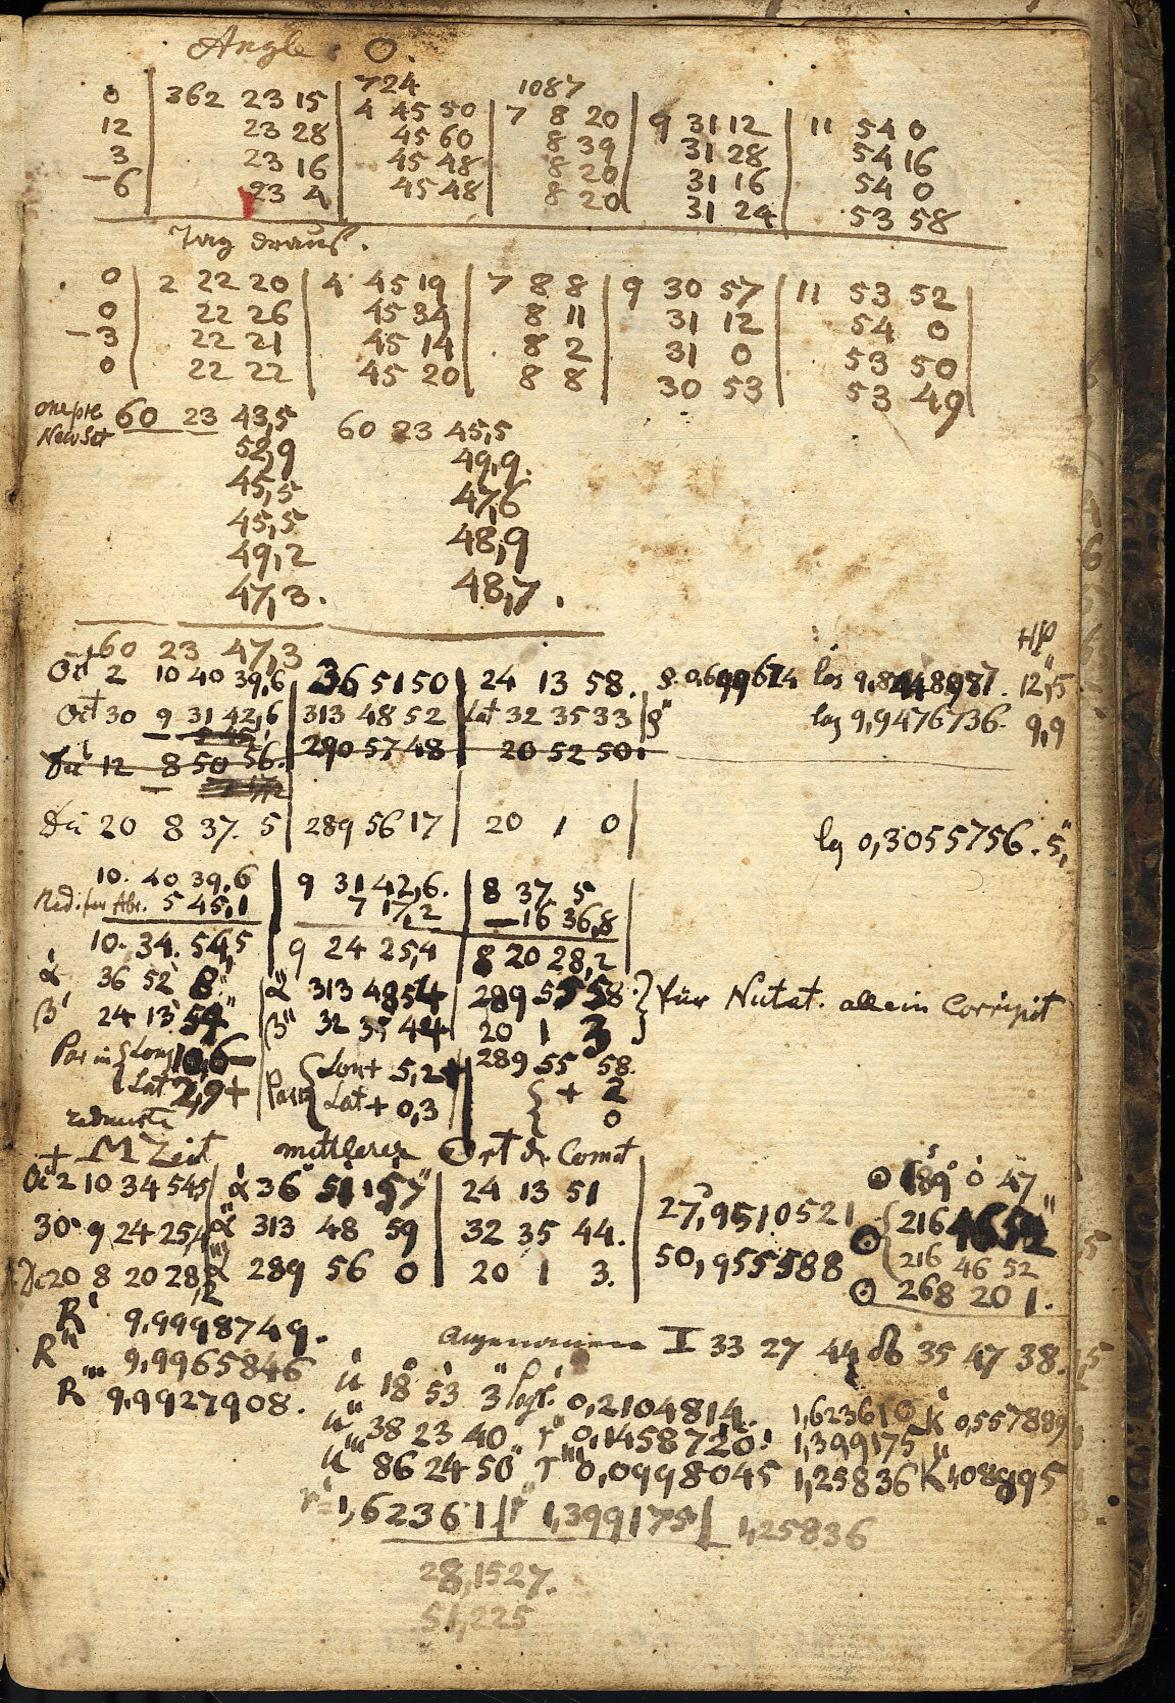 Angle. O.
724 1087
0 | 362 23 15 | 4 45 50 | 7 8 20 | 9 31 12 | 11 54 0
12 23 28 45 60 8 39 31 28 54 16
3 23 16 45 48 8 20 31 16 54 0
-6 23 4 45 48 8 20 31 24 53 58
Tag drauf.
0 | 2 22 20 | 4 45 19 | 7 8 8 | 9 30 57 | 11 53 52
0 22 26 45 34 8 11 31 12 54 0
-3 22 21 45 14 8 2 31 0 53 50
0 22 22 45 20 8 8 30 53 53 49
60 23 43,5 60 23 45,5
52,9 49,9.
45,5 47,6
45,5 48,9
49,2 48,7.
47,3.
60 23 47,3
Oct 2 10 40 39,6 | 36 51 50 | 24 13 58. log 9,8448981. 12",5
Oct 30 9 31 42,6 | 313 48 52 | Lat 32 35 33 | log 9,9476736. 9,9
12 8 50 56. | 290 57 48 20 52 50.
20 8 37. 5 | 289 56 17 | 20 1 0 lg 0,3055756. 5,"
10. 40 39,6 | 9 31 42,6. | 8 37 5
5 45,1 7 17,2 -16 36,8
10. 34. 54,5 | 9 24 25,4 | 8 20 28,2
α' 36 52 8" | α" 313 48 54 | 289 55 58. } für Nutat. allein Corrigirt
β' 24 13 59" | β" 32 35 44 20 1 3
Par in { Long 10,6- | Par { Lon+ 5,2 289 55 58.
{ Lat 2,9+ Lat + 0,3 { + 2
0
reducirte
M Zeit mittlerer Ort d. Comet
Oct 2 10 34 54,5 | α' 36° 51' 57" | 24 13 51 ⊙ 189° 0' 47
30 9 24 25,4 α" 313 48 59 32 35 44. 27,9510521 { 216 46 52"
⊙ { 216 46 52
20 8 20 28,2 α''' 289 56 0 | 20 1 3. 50,955588 ⊙ 268 20 1.
R' 9,9998749.
R" 9,9965846
R''' 9,9927908.
Angenommen I 33 27 44 ☊ 35 47 38.
u' 18° 53' 3" log r' 0,2104814. 1,62361 K' 0,557889
u" 38 23 40 r" 0,1458720. 1,399175
u''' 86 24 50 r''' 0,0998045 1,25836 K
r'=1,62361 | r" 1,399175 | 1,25836
28,1527.
51,225